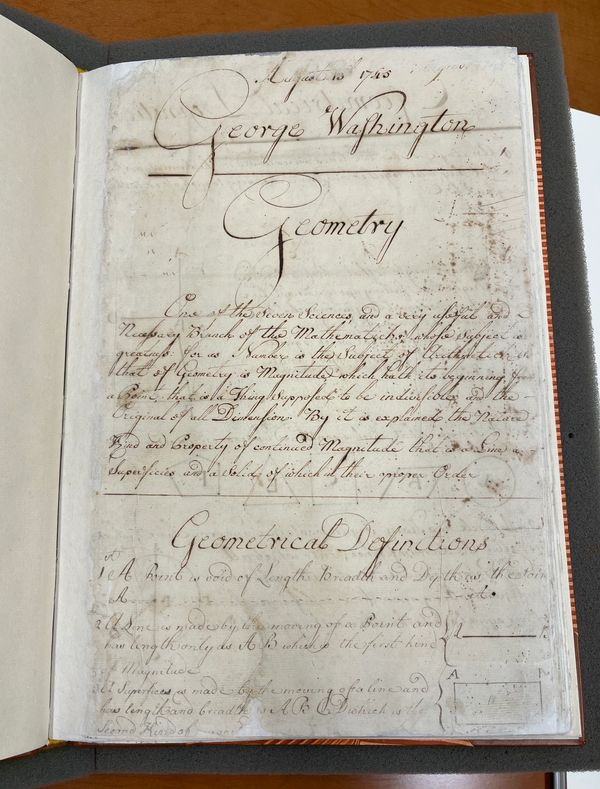 August 13 1745
George Washington
Geometry
One of the Seven Sciences, and a very useful and
Necessary Branch of the Mathematicks, whose Subject is
greatness: for as Number is the Subject of Arithmetick so
that of Geometry is Magnitude, which hath its beginning from
a Point, that is a Thing Supposed to be indivisible and the
Original of all Dimension. By it is explained the Nature
Kind and Property of continued Magnitude that is a Line, a
Superficies and a Solid, of which in their proper Order
Geometrical Definitions
1 A Point is void of Length Breadth and Depth as the Point
A
2 A Line is made by the moving of a Point and
has length only as A B which is the first kind
of Magnitude
3 A Superfices is made by the moving of a line and
has length and breadth as A B C D which is the
Second Kind of
A